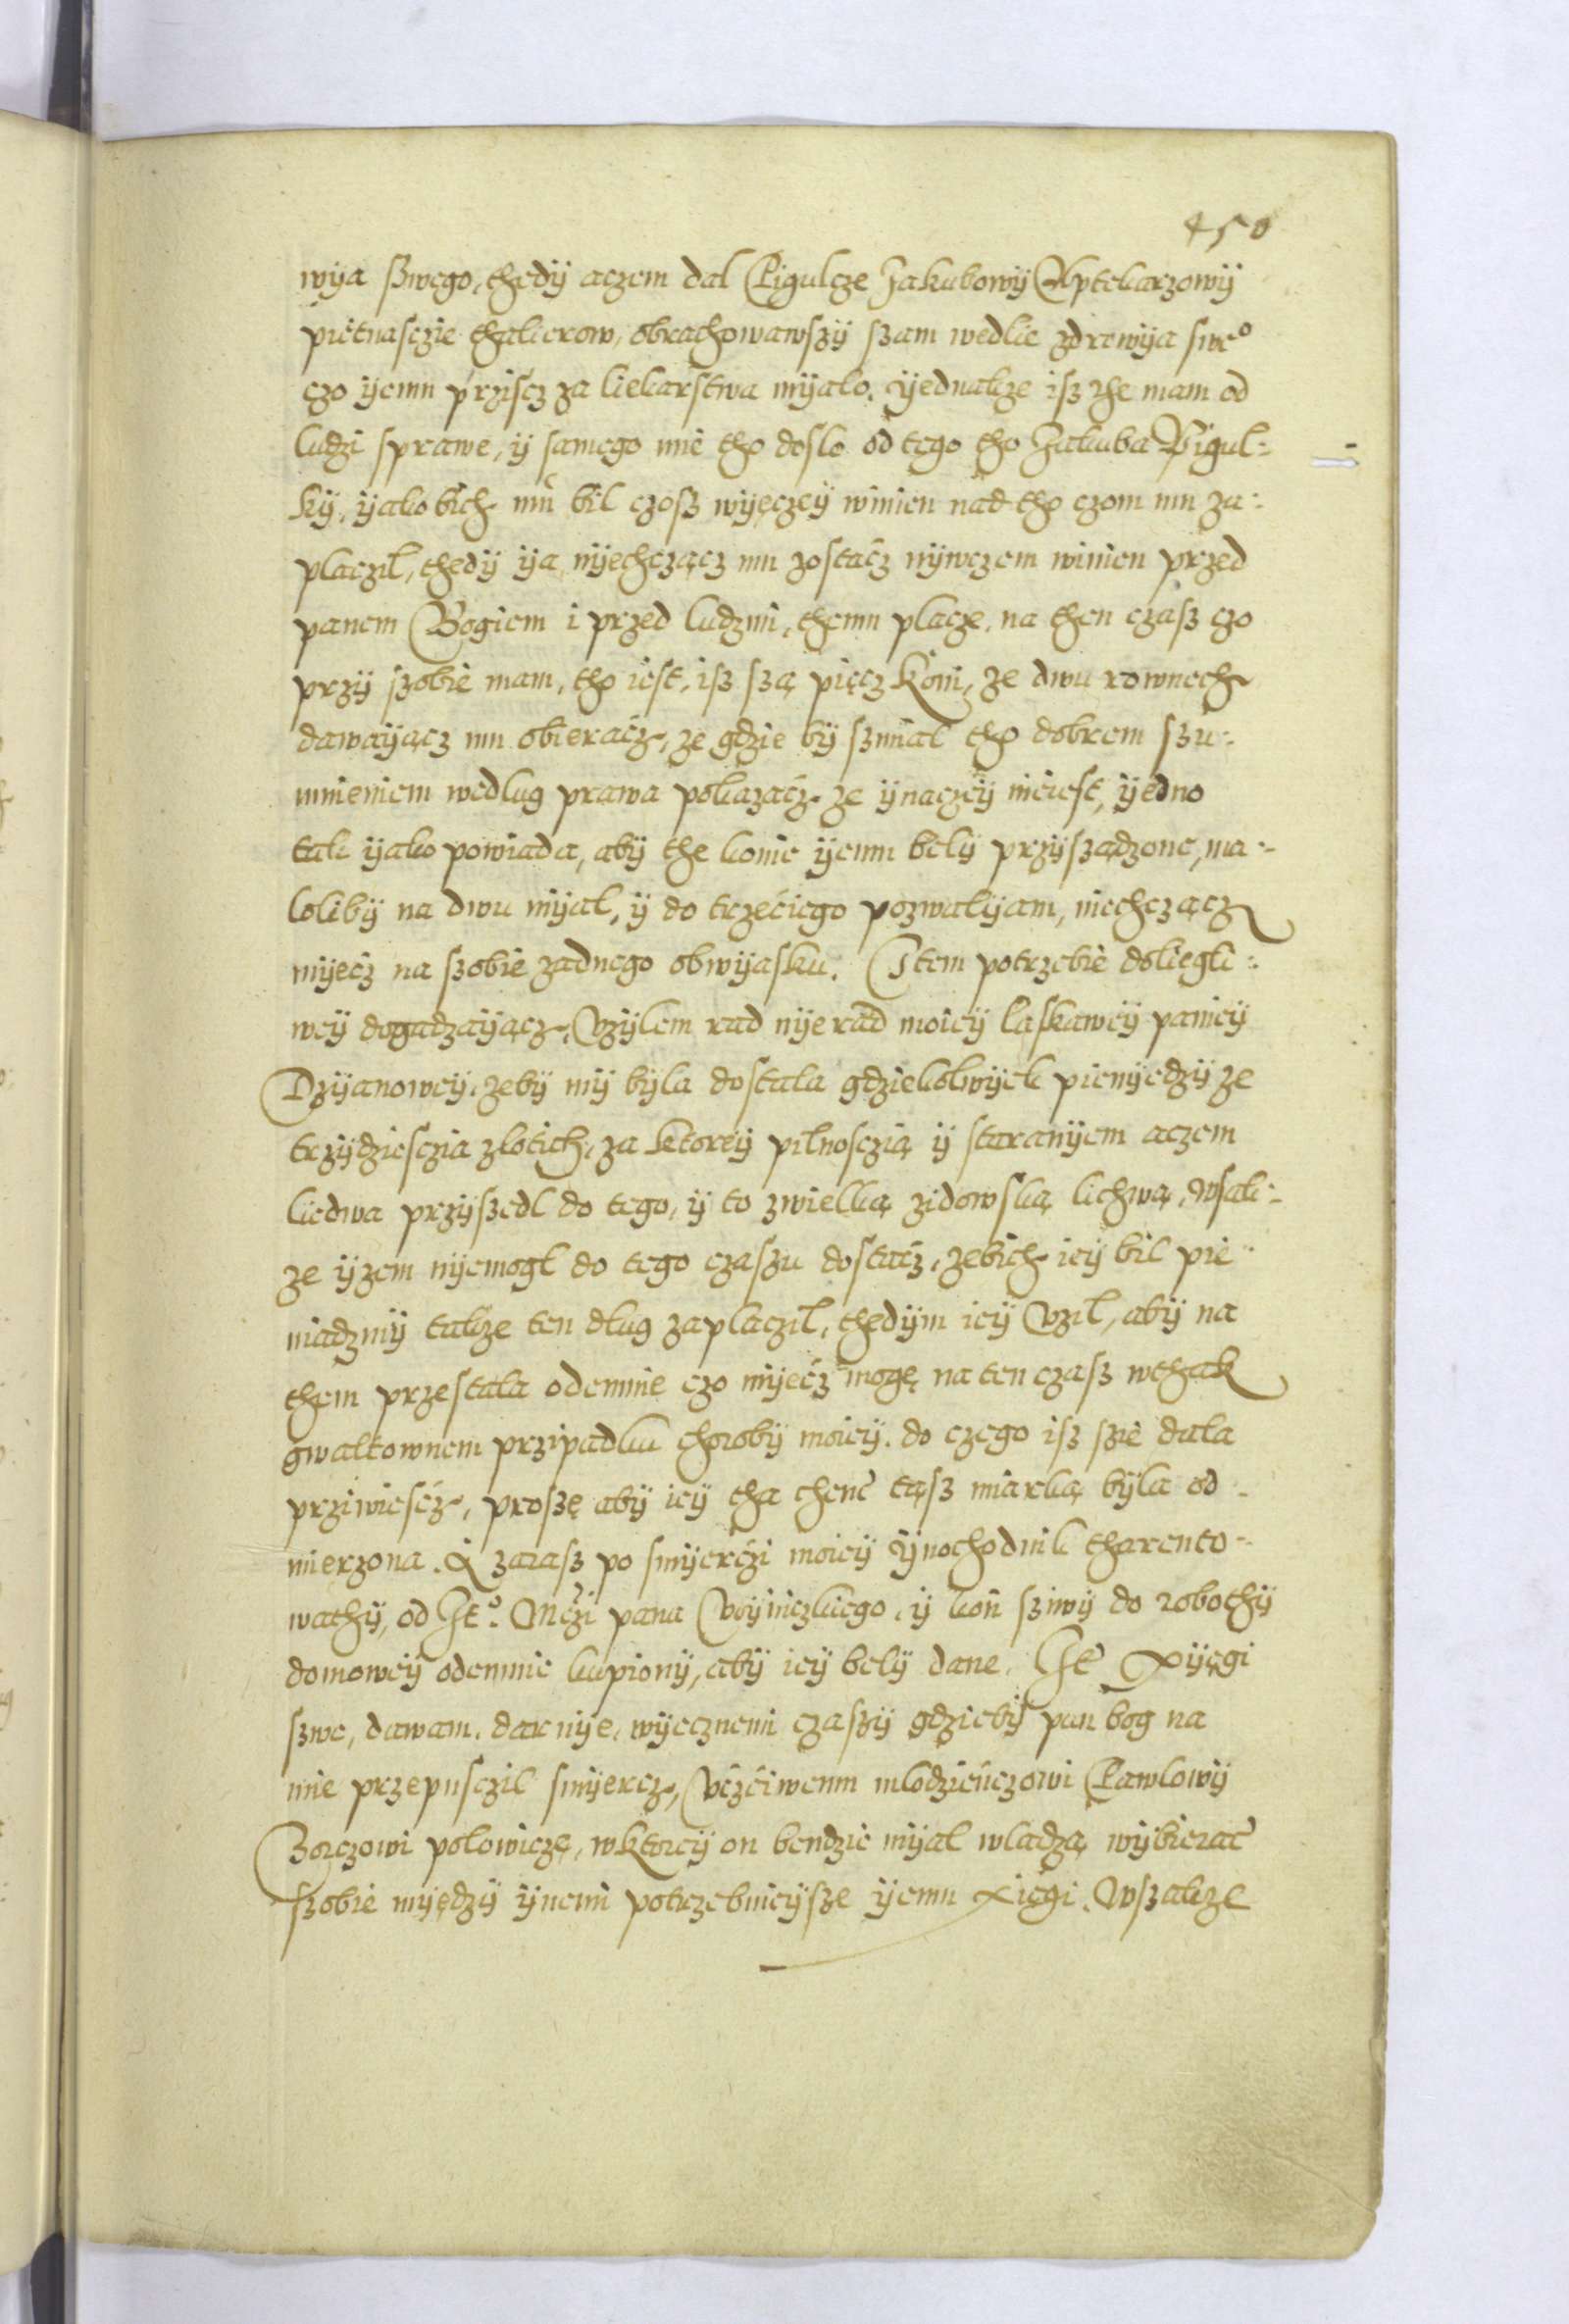 450
wÿa szwego, thedÿ aczem dal Pigulcze Jakubowÿ Aptekarzowÿ
pietnasczie thalierow, obrachowawszÿ szam wedlie zdrowÿa sweº
czo ÿemu prziscz za liekarstwa mÿalo. ÿednakze isz the mam od
ludzi sprawe, ÿ samego mie tho doslo od tego tho Jakuba Pigul-
kÿ, ÿako bich mu bil czosz wÿęczeÿ winien nad tho czom mu za-
placzil, thedÿ ÿa nÿechcząncz mu zostacz nÿwczem winien przed
panem Bogiem i przed ludzmi, themu placze, na then czasz czo
przÿ szobie mam, tho iest, isz szą pięcz koni, ze dwu rownech
dawaÿącz mu obieracz, ze gdzie bÿ szmial tho dobrem szu-
mnieniem wedlug prawa pokazacz ze ÿnaczeÿ nieiest, ÿedno
tak ÿako powiada, abÿ the konie ÿemu belÿ przÿsządzone, ma-
lolibÿ na dwu mÿal, ÿ do trzeciego pozwalÿam, niechcząncz
mÿecz na szobie zadnego obwÿasku. Item potrzebie doliegli-
weÿ dogadzaÿącz, Uzÿlem rad nÿerad moieÿ laskaweÿ panieÿ
Dzÿanoweÿ, zebÿ mÿ bÿla dostala gdziekolwÿek pienÿedzÿ ze
trzÿdziesczia zlotich, za ktoreÿ pilnosczią ÿ staranÿem aczem
liedwa przÿszedl do tego, ÿ to zwielką zidowską lichwą, wsak-
ze ÿzem nÿemogl do tego czaszu dostacz, zebich ieÿ bil pie-
niadzmÿ takze ten dlug zaplaczil, thedÿm ieÿ Uzil, abÿ na
them przestala odemnie czo mÿecz mogę na ten czasz wthak
gwaltownem przipadku chorobÿ moieÿ. do czego isz szie dala
prziwiescz, proszę abÿ ieÿ tha chenc tąsz miarką bÿla od-
mierzona. A zarasz po smÿerczi moieÿ ÿnochodnik tharento-
wathÿ, od Jeº. Mczi pana Woÿniczkiego, ÿ kon sziwÿ do robothÿ
domoweÿ odemnie kupionÿ, abÿ ieÿ belÿ dane. Ite Xÿęgi
szwe, dawam, darnÿe, wÿecznemi czaszÿ gdziebÿ pan bog na
mie przepusczil smÿercz, Uczciwemu mlodzienczowi Pawlowÿ
Zorczowi polowiczę, wktoreÿ on bendzie mÿal wladzą wÿbierac
szobie mÿędzÿ ÿnemi potrzebnieÿsze ÿemu xięgi. Wszakze